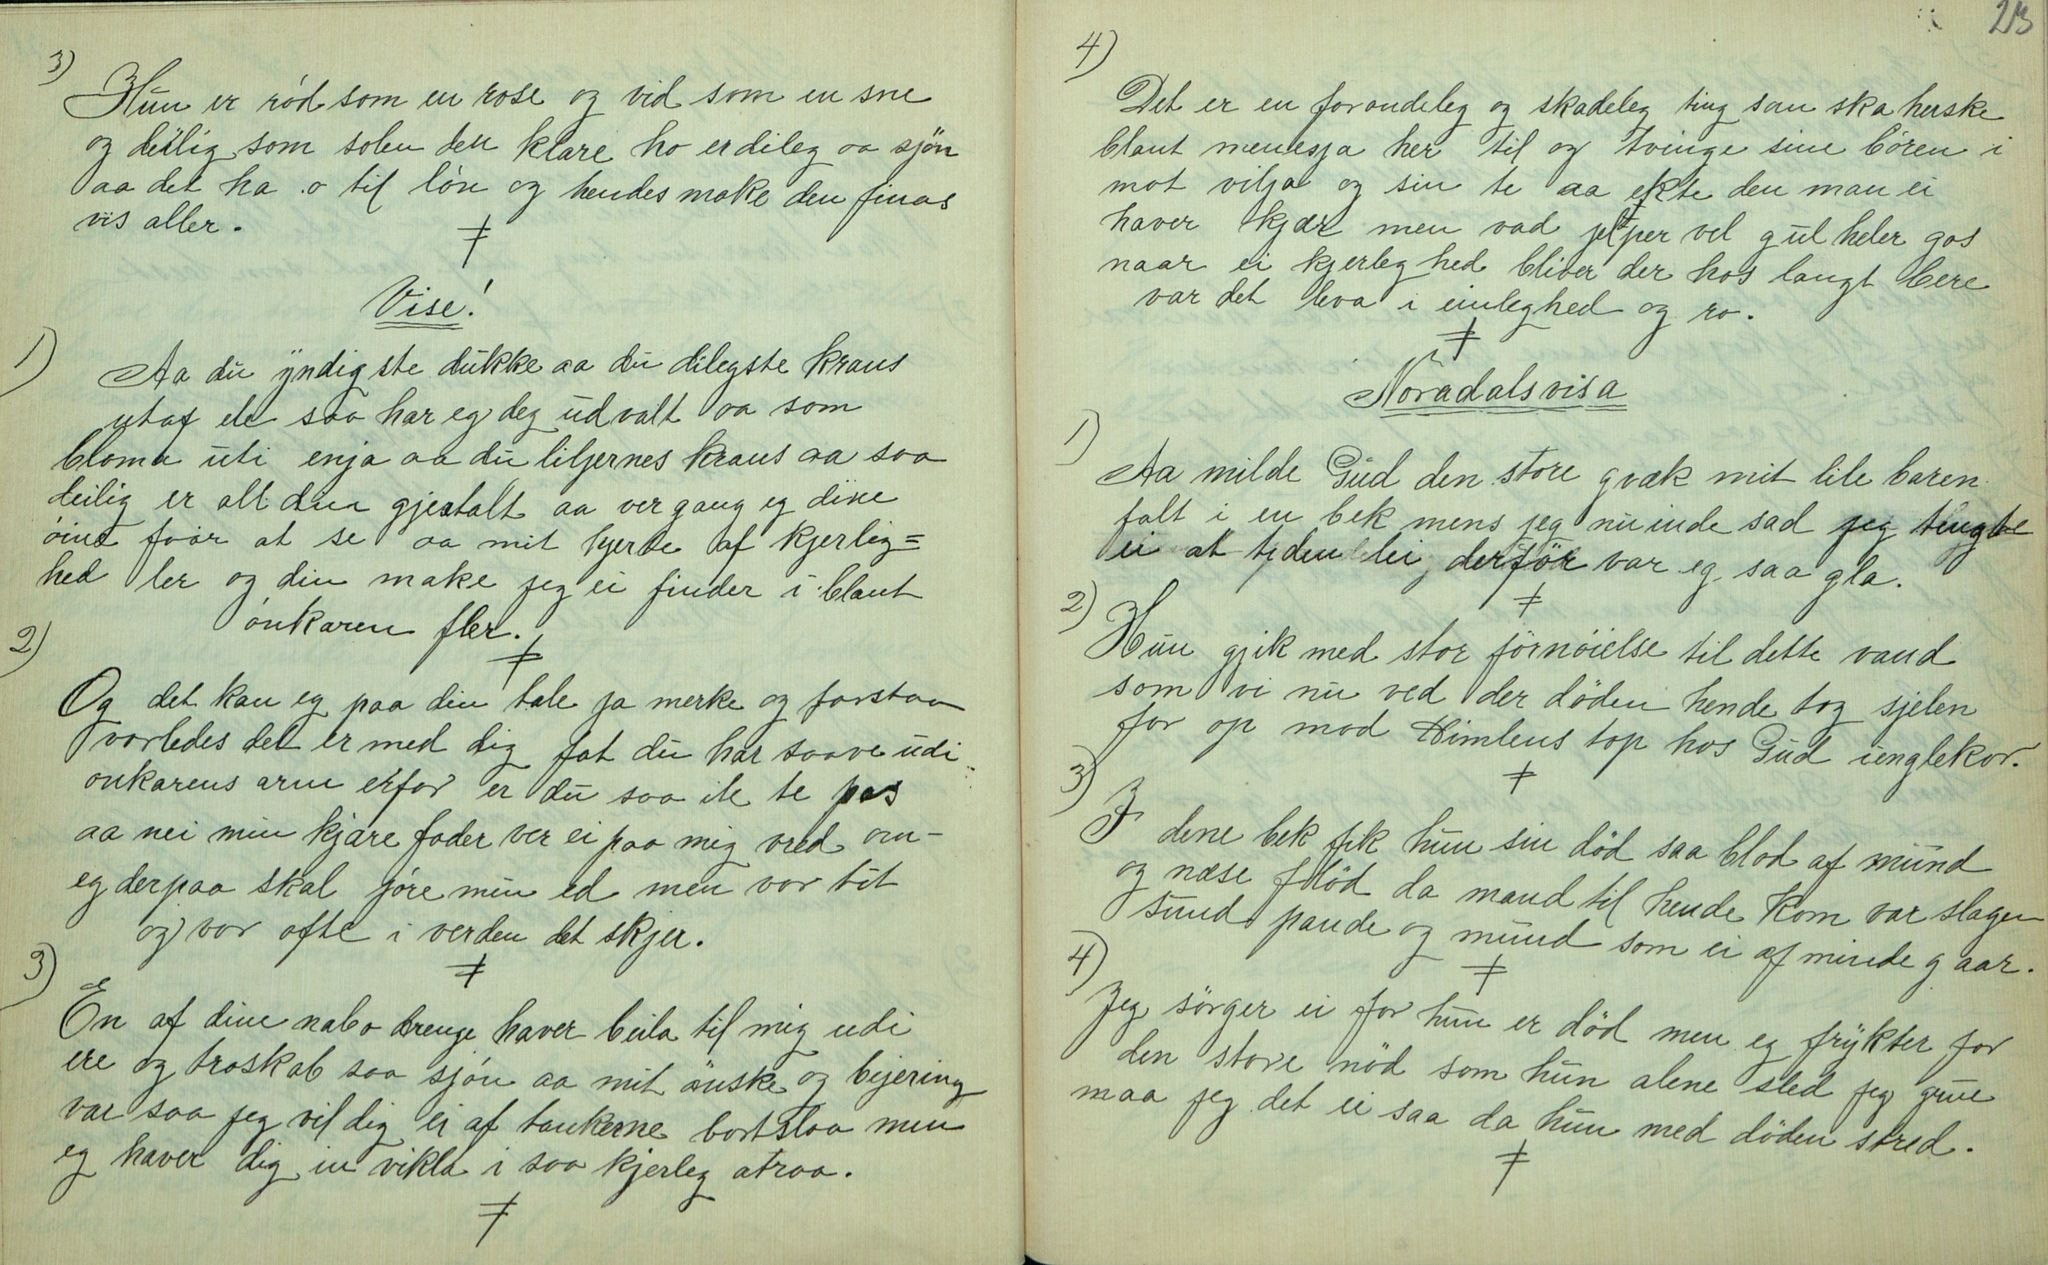 3)
Hun er rød som en rose og vid som en sne
og deilig som solen den klare ho er dileg aa sjön
aa det ha o til lón og hendes make den finas
vis aller.
Vise!
1)
Aa du yndigste dukke aa du dilegste krans
utaf ele saa har eg deg udvalt aa som
bloma uti enja aa du liljernes krans aa saa
deilig er all din gjestalt aa ver gang eg dine
óine faar at se aa mit hjerte af kjerlig=
hed ler og din make jeg ei finder i blant
ónkaren fler.
2)
Og det kan eg paa din tale ja merke og forstaa
vorledes det er med dig fat du har saave udi
onkarens arm erfor er du saa ile te pas
aa nei min kjare fader ver ei paa mig vred om
eg derpaa skal jóre min ed men vor tit
og vor ofte i verden det skjer.
3)
En af dine nabo drenge haver beila til mig udi
ere og troskab saa sjón aa mit ønske og bejering
var saa jeg vil dig ei af tankerne bortslaa men
eg haver dig in vikla i saa kjerleg atraa.
23
4)
Det er en forondeleg og skadeleg ting san ska herske
blant menesja her til og tvinge sine bóren i
mot vilja og sin te aa ekte den man ei
haver kjær men vad jelper vel gul heler gos
naar ei kjerleghed bliver der hos langt bere
var det leva i einleghed og ro.
Nóradalsvisa
1)
Aa milde Gud den store gvæk mit lile baren
falt i en bek mens jeg nu inde sad jeg tengte
ei at tiden lei, derför var eg saa gla.
2)
Hun gjik med stor fórnóielse til dette vand
som vi nu ved der döden hende tog sjelen
for op mod Himlens top hos Gud i englekor.
3)
I dene bek fik hun sin död saa blod af mund
og næse flöd da mand til hende kom var slagen
sund pande og mund som ei af minde gaar.
4)
Jeg sörger ei for hun er död men eg frykter for
den store nöd som hun alene sled jeg grue
maa jeg det ei saa da hun med döden stred.